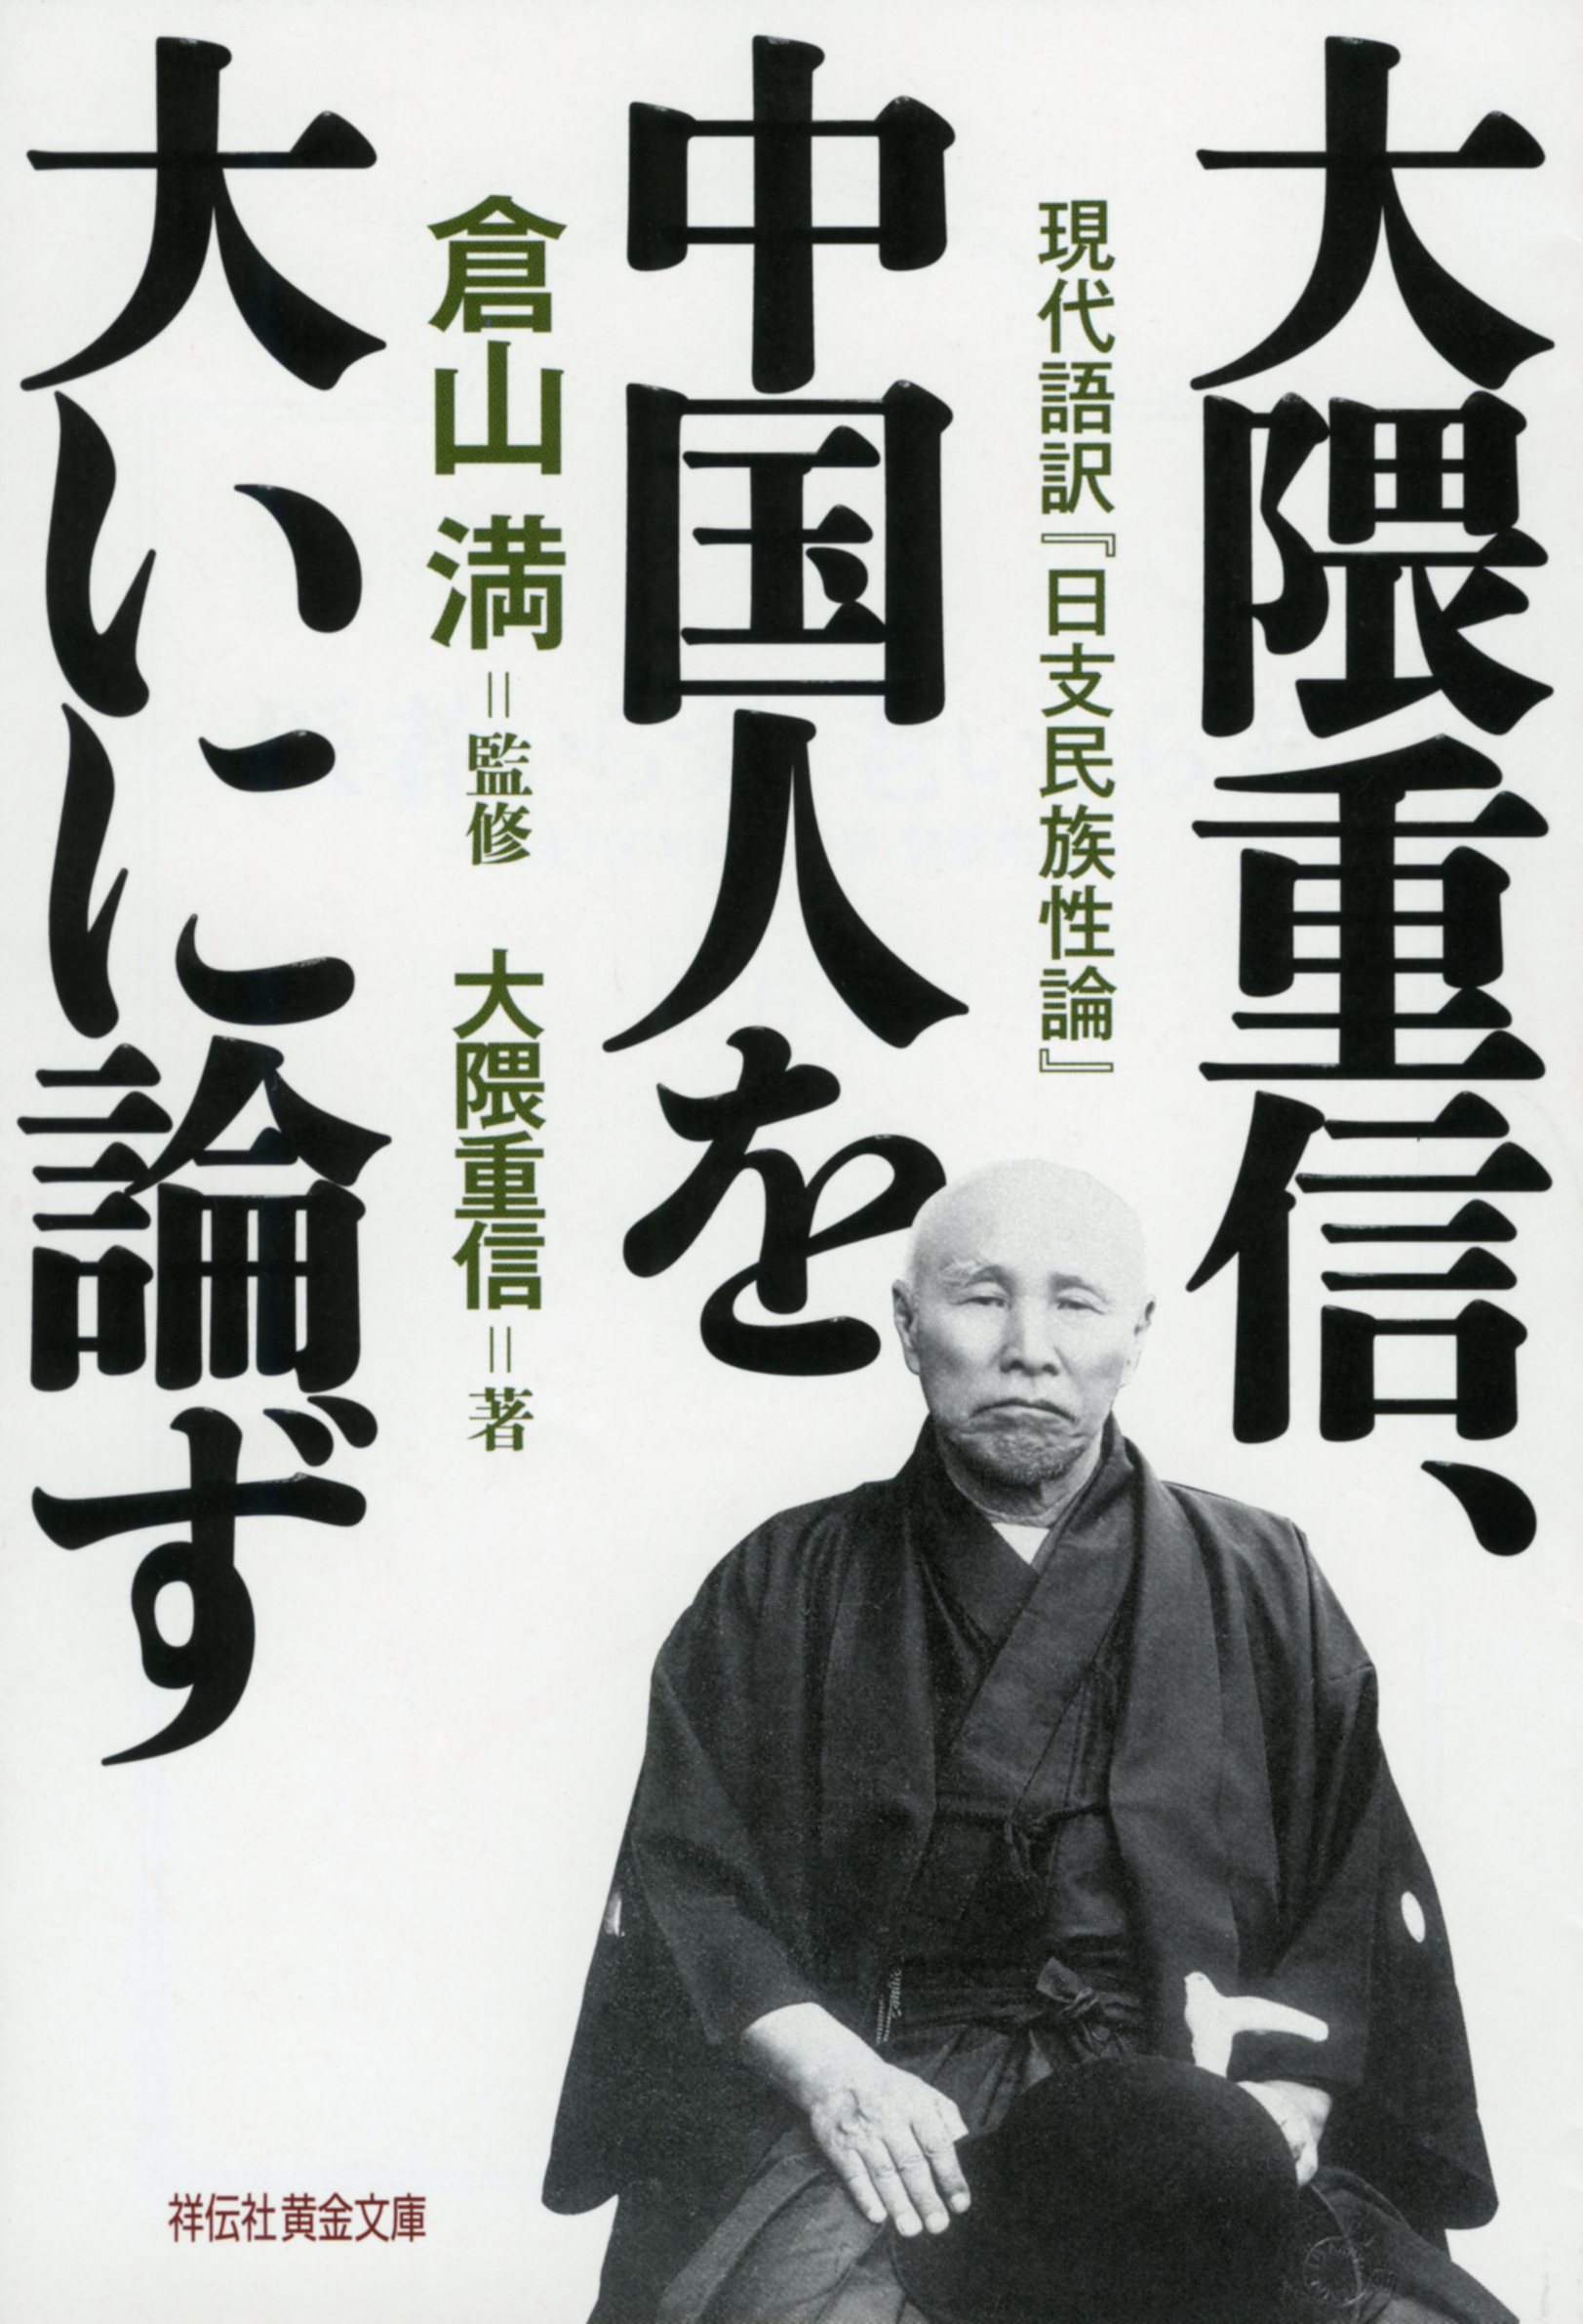 大隈重信、
現代語訳『日支民族性論』
中国人を
倉山 満=監修　大隈重信=著
大いに論ず
祥伝社黄金文庫